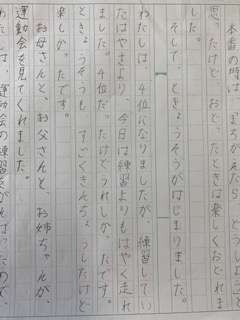 本番の時は、まちがえたら、どうしようと
思ったけど、おどったときは楽しくおどれま
した。
そして、ときょうそうがはじまりました。
わたしは、4位になりましたが、練習してい
たはやさより、今日は練習よりもはやく走れ
ました。4位だったけどうれしかったです。
ときょうそうもすごくきんちょうしたけど
楽しかったです。
お母さんと、お父さんと、お姉ちゃんが、
運動会を見てくれました。
わたしは、運動会の練習をがんばったので